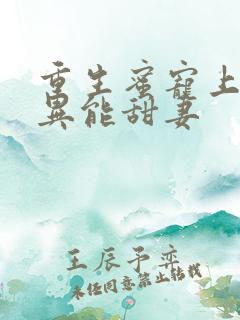 重生蜜宠上
异能甜妻
王辰予弈
未经同意禁止转载